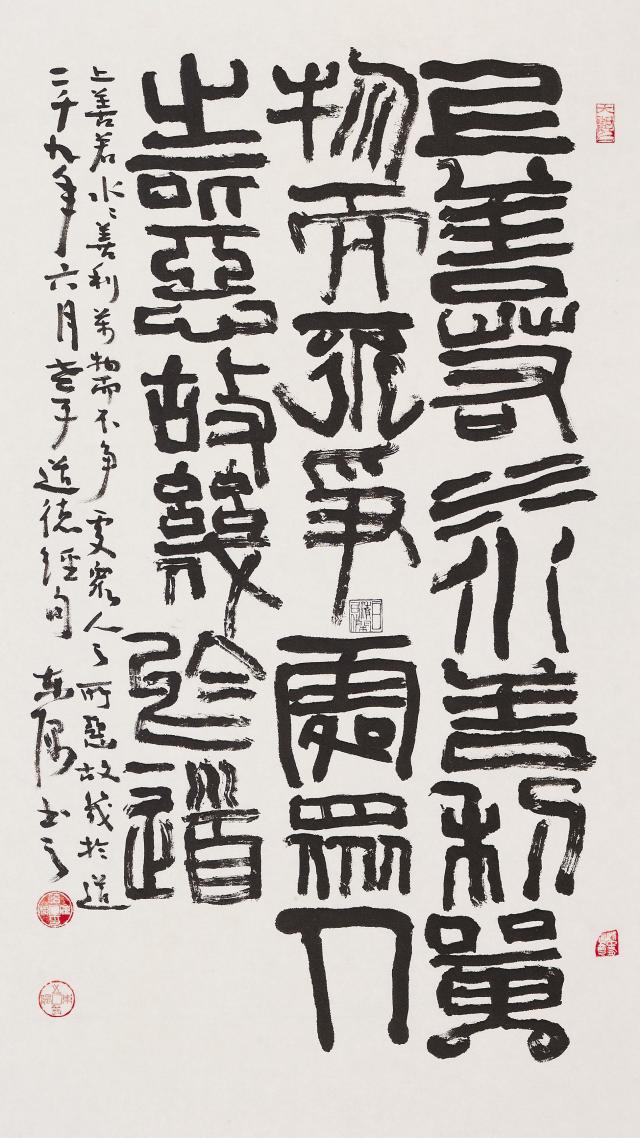 上善若水善利萬
物而不爭處眾人
之所惡故幾於道
上善若水〻善利萬物而不争處眾人之所惡故幾於道
二千九年六月老子道德經句 书之